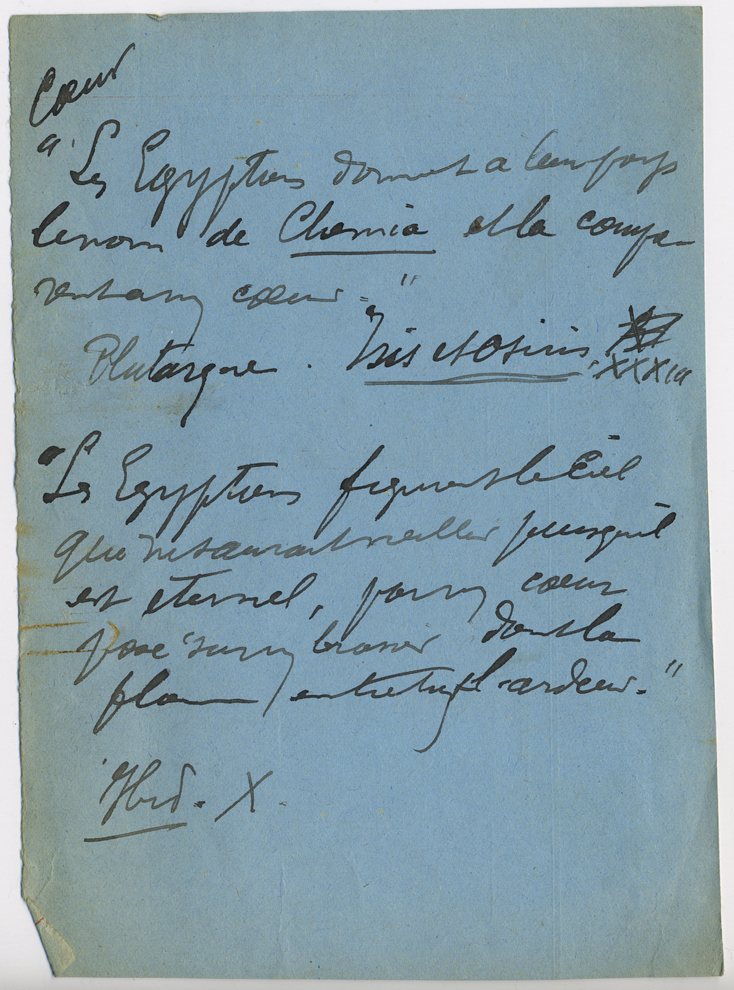 Cœur
"Les Egyptiens donnent a leur pays
le nom de Chemia et la compa-
rent a un cœur."
Plutarque. Isis et Osiris, XXXIII
"Les Egyptiens figurent le Ciel
qui ne saurait vieillir puisqu'il
est eternel, par un cœur
posé sur un brasier dont la
flamme entretient l'ardeur."
Ibid. X.